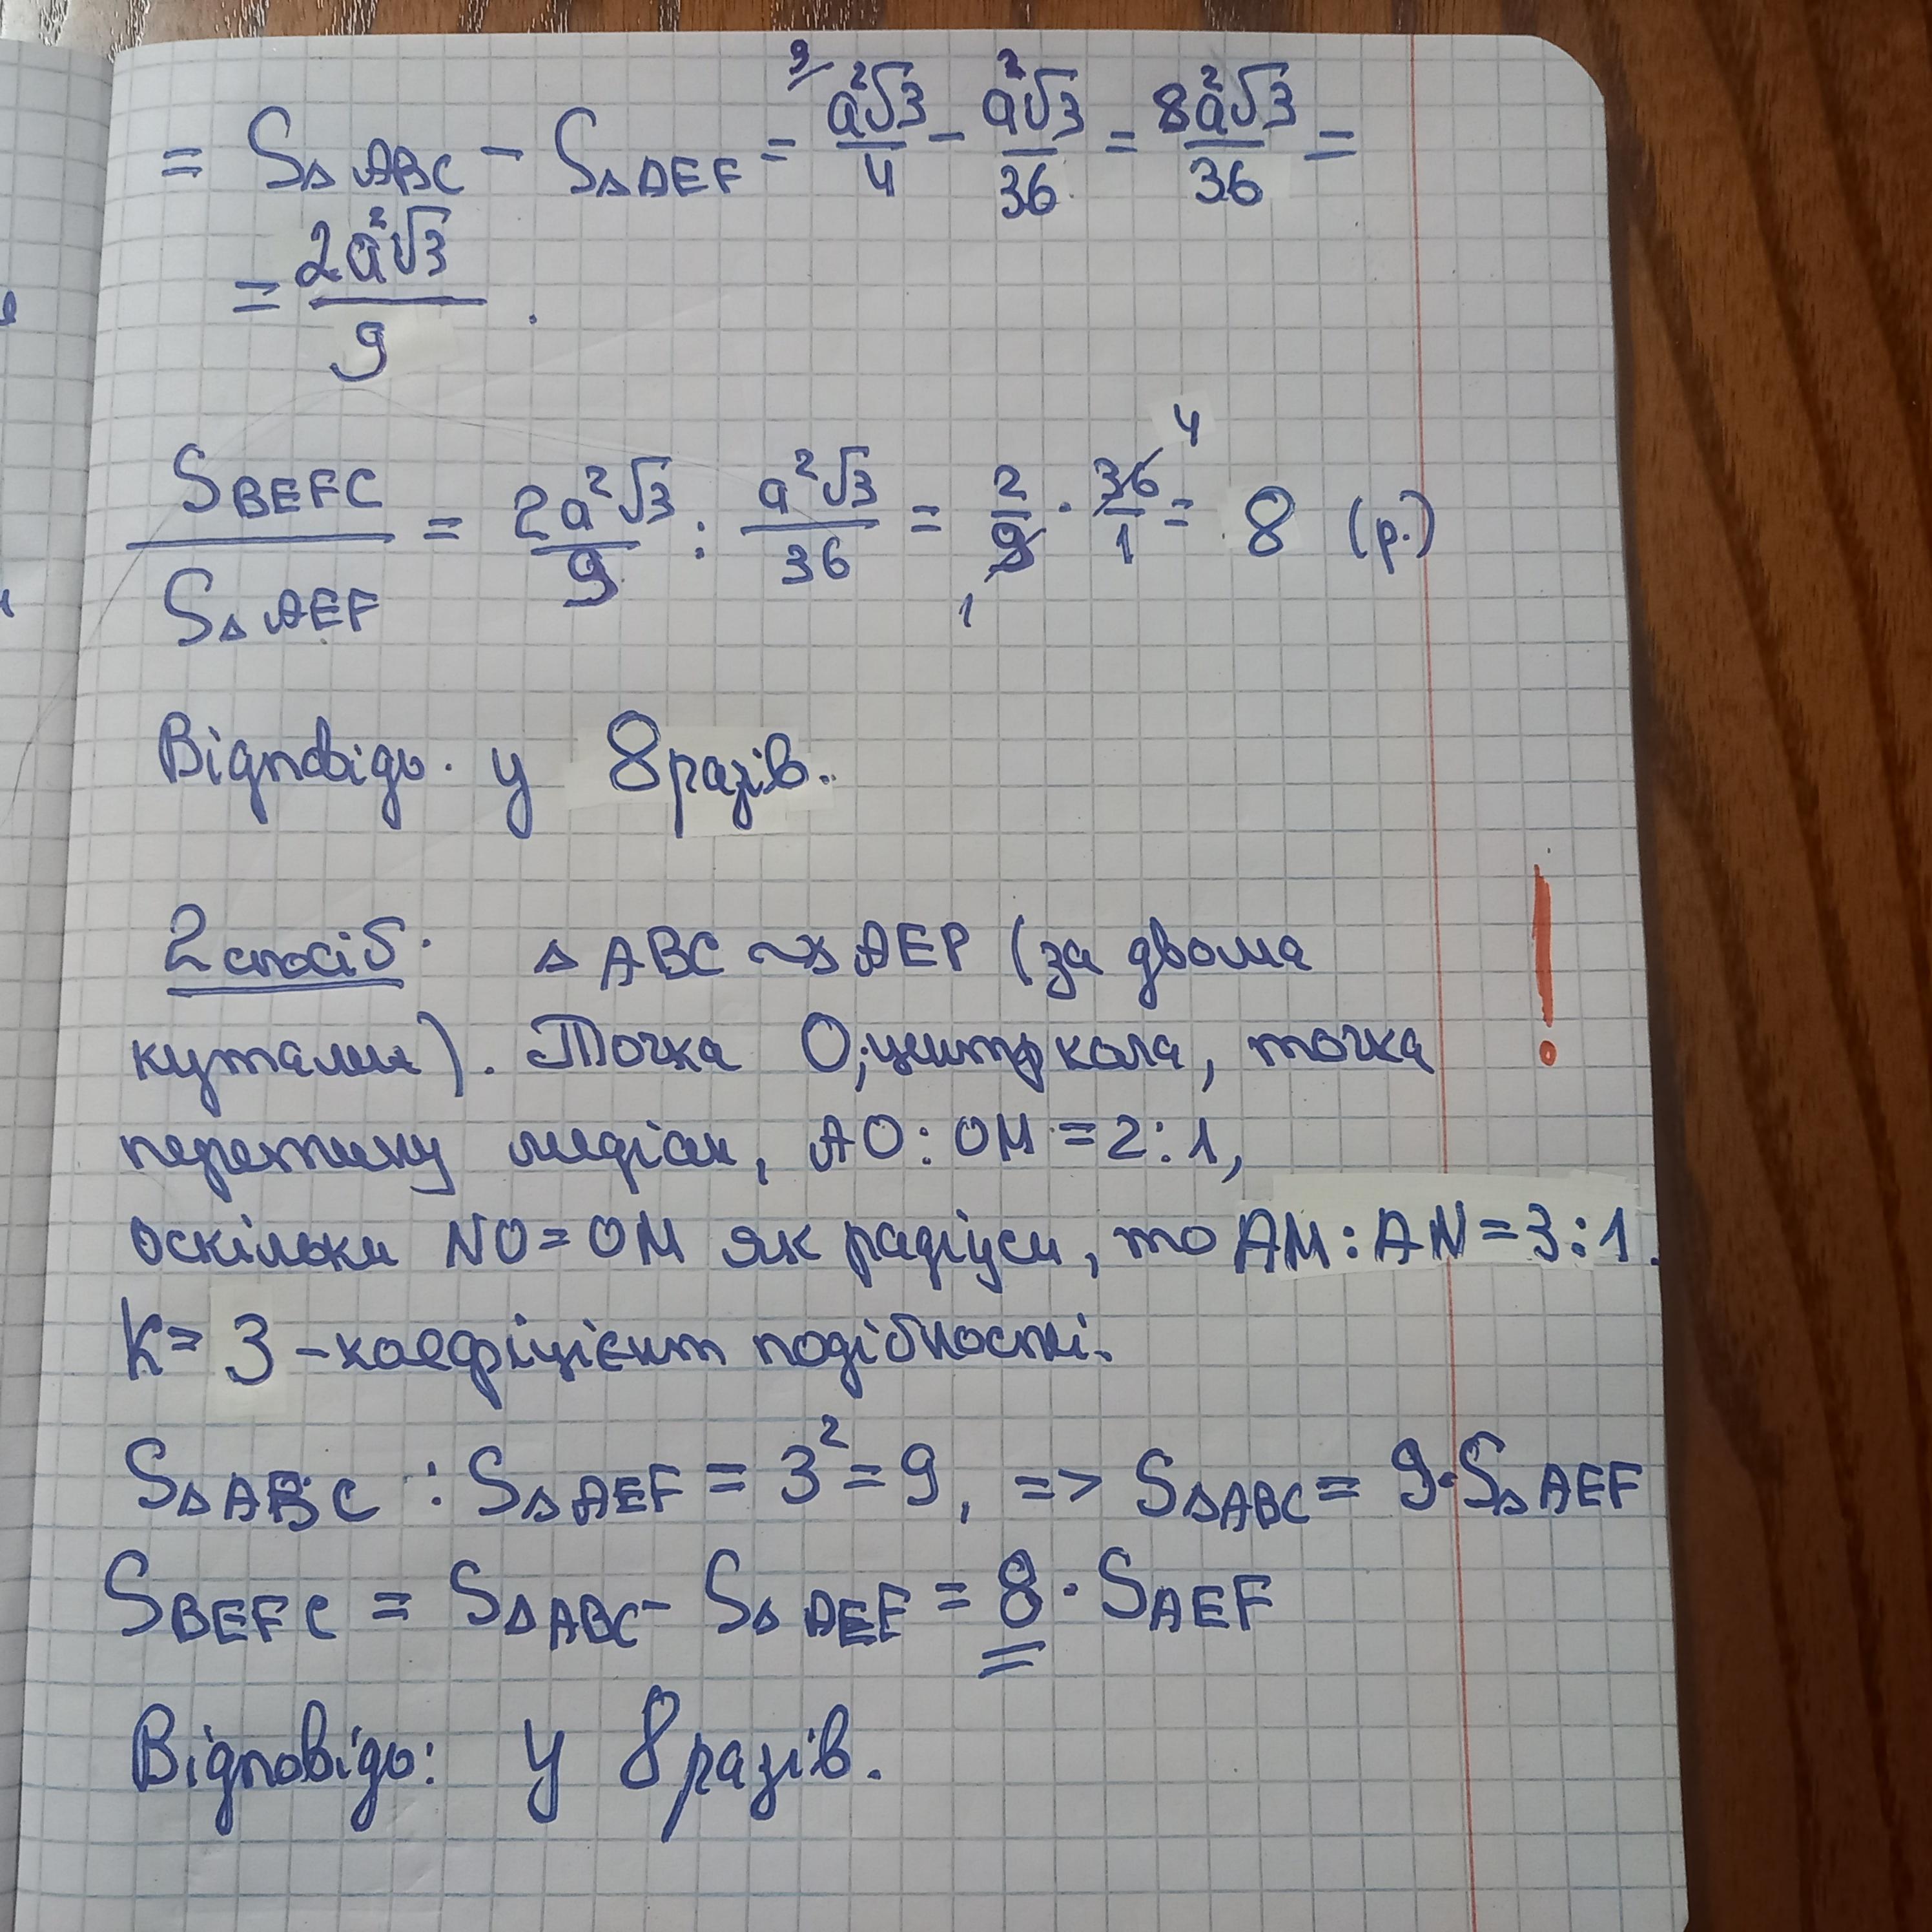 = S△ABC - S△AEF = ⁹⁄ a²√3/4 - a²√3/36 = 8a²√3/36 =
= 2a²√3/9.
S BEFC / S△AEF = 2a²√3/9 : a²√3/36 = 2/9 1 · 36/1 4 = 8 (р.)
Відповідь. у 8 разів.
2 спосіб. △ABC ~ △AEP (за двома
кутами). Точка O, центр кола, точка
перетину медіан, AO : OM = 2 : 1,
оскільки NO = OM як радіуси, то AM : AN = 3 : 1.
K = 3 - коефіцієнт подібності.
S△ABC : S△AEF = 3² = 9, => S△ABC = 9·S△AEF
S BEFC = S△ABC - S△AEF = 8 · S AEF
Відповідь: у 8 разів.
!